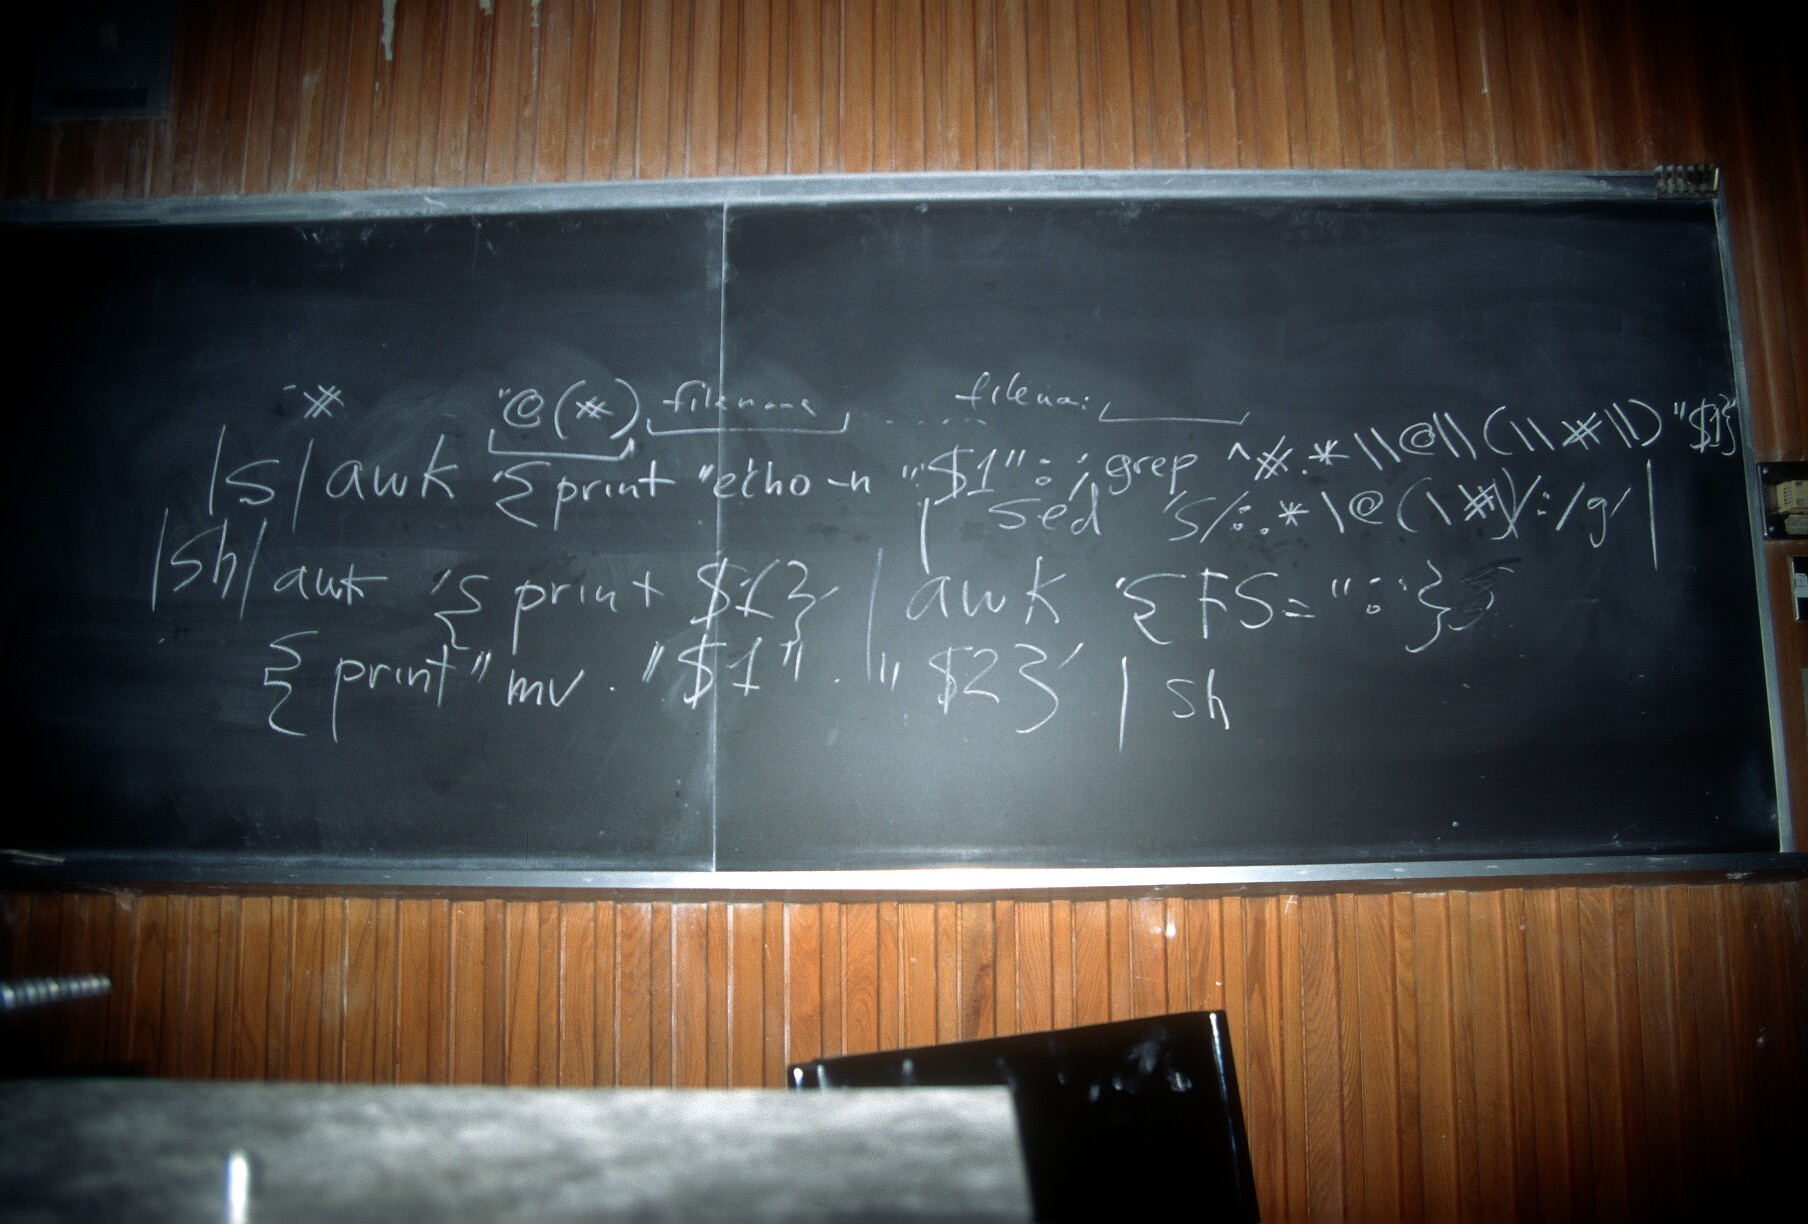 *
"@(*) filename ...... filena
ls | awk '{print "echo -n "$1": ; grep ^#.*\\@\\(\\#\\) "$1}'
| sed 's/:.*\@(\#)/:/g' |
|sh| awk '{print $1}' | awk '{FS=":"}
{print "mv . "$1" . " $2}' | sh